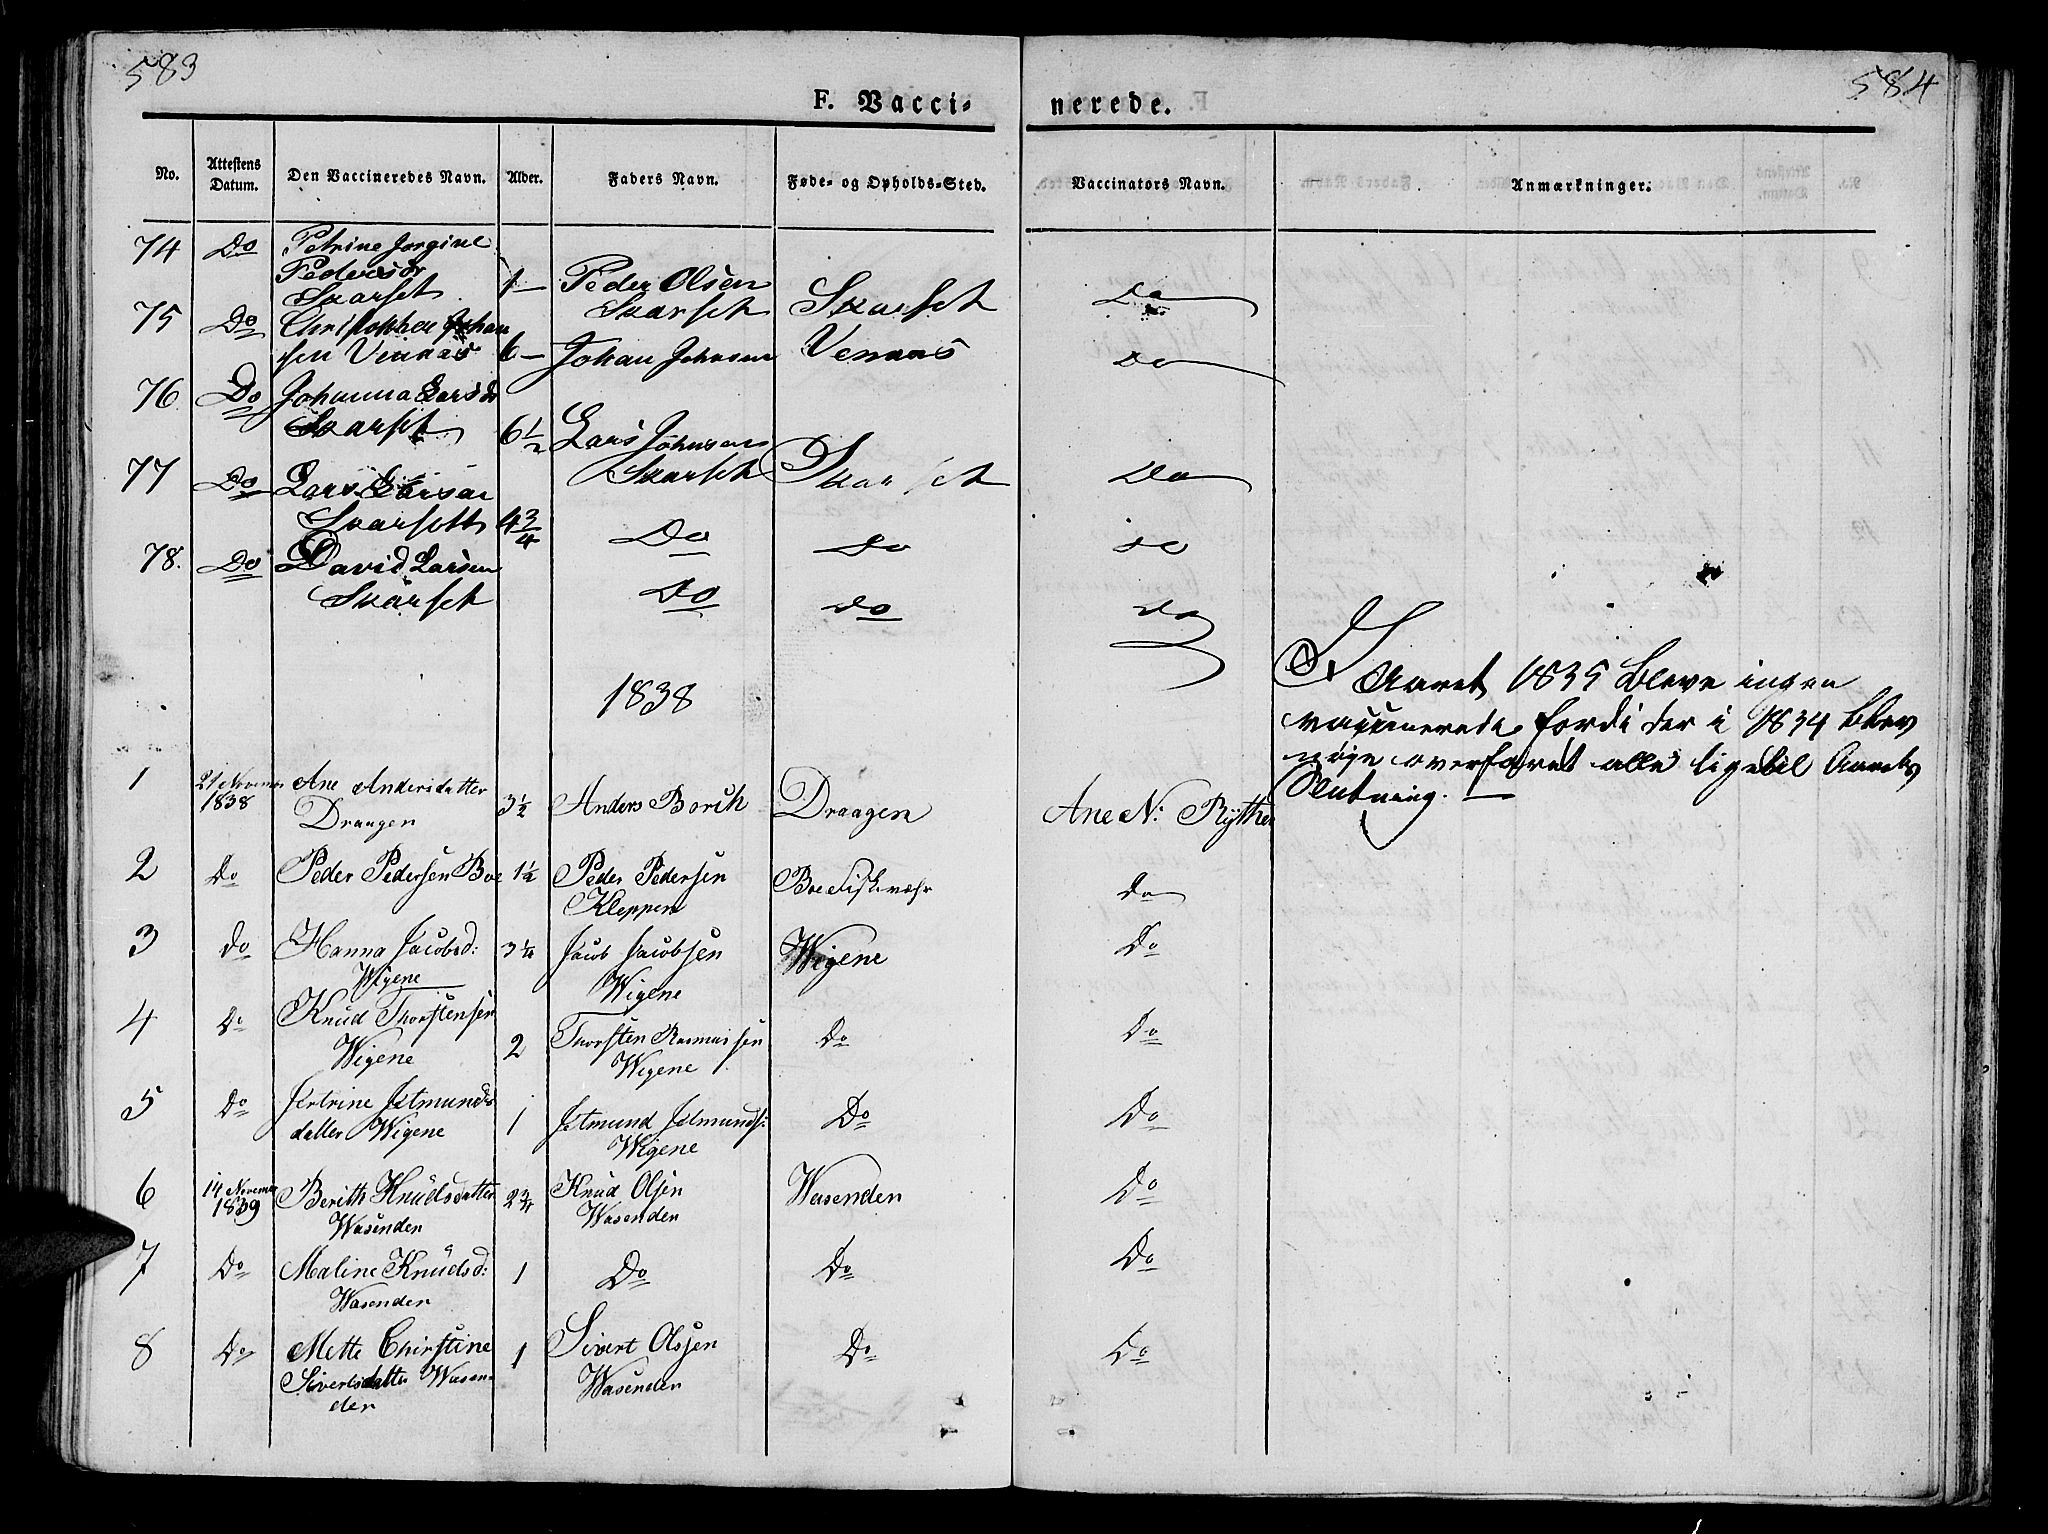 583
584
F. Vacci-
nerede.
No.
Attestens Datum.
Den Vaccineredes Navn.
Alder.
Faders Navn.
Føde- og Opholds-Sted.
Vaccinators Navn.
Anmærkninger.
74 Do Petrine Jorgine
Pedersdr 1 Peder Olsen
Skarset Skarset Skarset Do
75 Do Christopher Johan
sen Venaas 6 Johan Johnsen Venaas Do
76 Do Johanna Larsd
Skarset 6 1/2 Lars Johnsen
Skarset Skarset Do
77 Do Lars Larsen
Skarsett 4 3/4 Do Do Do
78. Do David Larsen
Skarset Do Do Do
I Aaret 1835 bleve ingen
vaccinerede fordi der i 1834 blev
nøje overfaret alle ligetil Aarets
Slutning.
1838
1 21 Novemb 1838 Ane Andersdatter
Draagen 3 1/2 Anders Borch Draagen Ane N: Rÿther
2 Do Peder Pedersen Boe 1 1/2 Peder Pedersen
Kleppen Boe Fiskevæhr Do
3 Do Hanna Jacobsd:
Wigene 3 1/4 Jacob Jacobsen
Wigene Wigene Do
4 Do Knud Thorstensen
Wigene 2 Thorsten Rasmussen
Wigene Do Do
5 Do Jertrine Jetmunds
datter Wigene 1 Jetmund Jetmunds:
Wigene Do Do
6 14 Novemb 1839 Berith Knudsdatter
Wasenden 2 3/4 Knud Olsen
Wasenden Wasenden Do
7 Do Maline Knudsd:
Wasenden 1 Do Do Do
8 Do Mette Chirstine
Sivertsdatter Wasen
der 1 Sivert Olssen
Wasenden Do Do